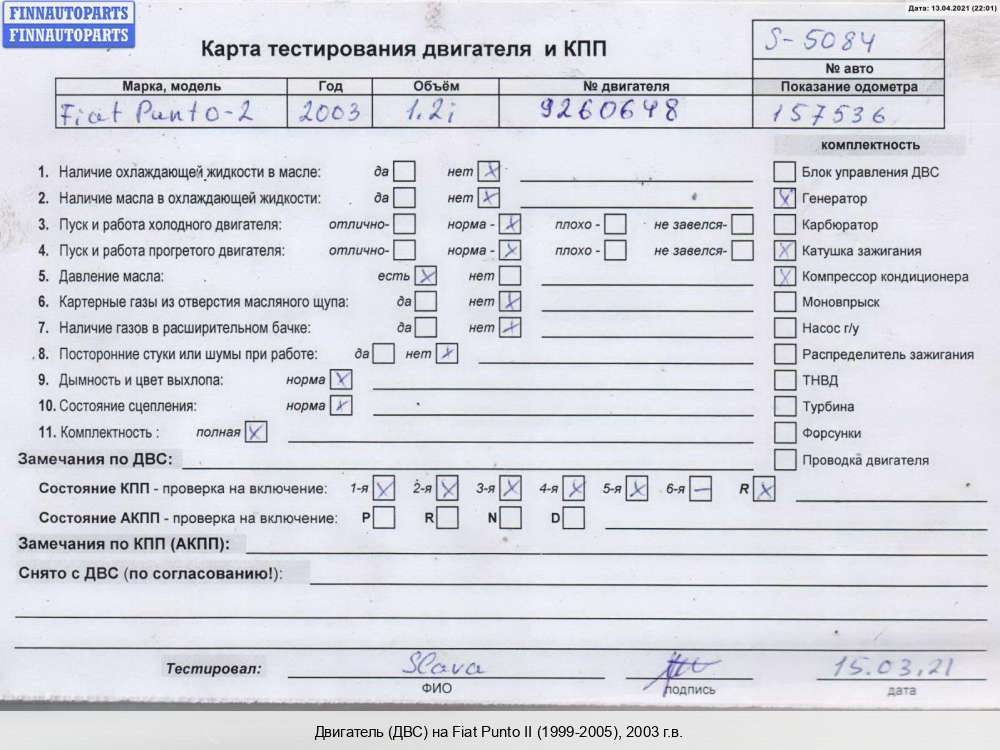 FINNAUTOPARTS
FINNAUTOPARTS
Дата: 13.04.2021 (22:01)
Карта тестирования двигателя и КПП
S-5084
№ авто
Марка, модель Год Объём № двигателя Показание одометра
Fiat Punto-2 2003 1.2i 9260648 157536
комплектность
1. Наличие охлаждающей жидкости в масле: да нет X Блок управления ДВС
2. Наличие масла в охлаждающей жидкости: да нет X X Генератор
3. Пуск и работа холодного двигателя: отлично- норма - X плохо - не завелся- Карбюратор
4. Пуск и работа прогретого двигателя: отлично- норма - X плохо - не завелся- X Катушка зажигания
5. Давление масла: есть X нет X Компрессор кондиционера
6. Картерные газы из отверстия масляного щупа: да нет X Моновпрыск
7. Наличие газов в расширительном бачке: да нет X Насос г/у
8. Посторонние стуки или шумы при работе: да нет X Распределитель зажигания
9. Дымность и цвет выхлопа: норма X ТНВД
10. Состояние сцепления: норма X Турбина
11. Комплектность : полная X Форсунки
Замечания по ДВС: Проводка двигателя
Состояние КПП - проверка на включение: 1-я X 2-я X 3-я X 4-я X 5-я X 6-я — R X
Состояние АКПП - проверка на включение: P R N D
Замечания по КПП (АКПП):
Снято с ДВС (по согласованию!):
Тестировал: Slava 15.03.21
ФИО подпись дата
Двигатель (ДВС) на Fiat Punto II (1999-2005), 2003 г.в.